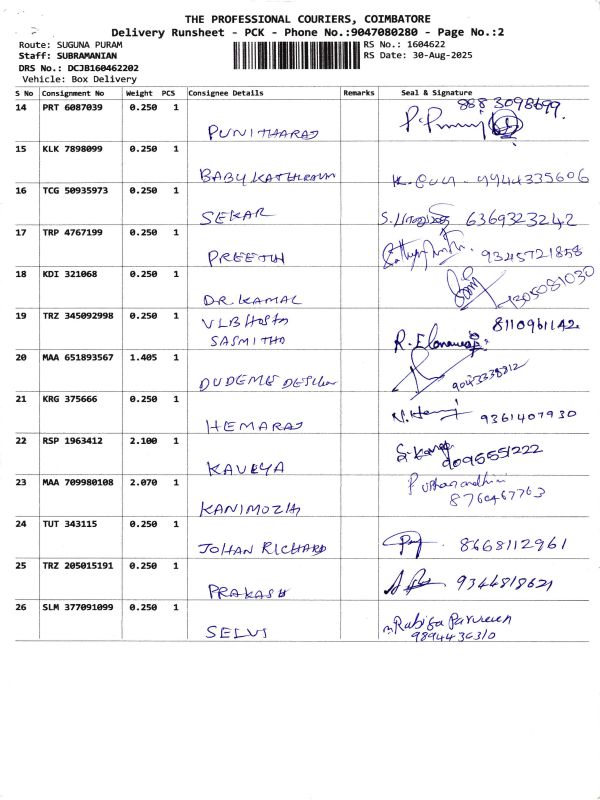 THE PROFESSIONAL COURIERS, COIMBATORE
Delivery Runsheet - PCK - Phone No.:9047080280 - Page No.:2
Route: SUGUNA PURAM RS No.: 1604622
Staff: SUBRAMANIAN RS Date: 30-Aug-2025
DRS No.: DCJB160462202
Vehicle: Box Delivery
S No Consignment No Weight PCS Consignee Details Remarks Seal & Signature
14 PRT 6087039 0.250 1 8883098699
PUNITHARAJ
15 KLK 7898099 0.250 1
BABY K. 9944335606
16 TCG 50935973 0.250 1
SEKAR 6369323242
17 TRP 4767199 0.250 1
PREETH 9345721858
18 KDI 321068 0.250 1
DR.KAMAL 9305081030
19 TRZ 345092998 0.250 1 VLB 8110961142
SASMITHO R.
20 MAA 651893567 1.405 1
9043338812
21 KRG 375666 0.250 1
HEMARAJ 9361407930
22 RSP 1963412 2.100 1
KAVEYA 9095551222
23 MAA 709980108 2.070 1
KANIMOZIA 8760467763
24 TUT 343115 0.250 1
JOHAN RICHARD 8668112961
25 TRZ 205015191 0.250 1
PRAKASH 9344818621
26 SLM 377091099 0.250 1
SELVI Rabiya Parveen
9894436310